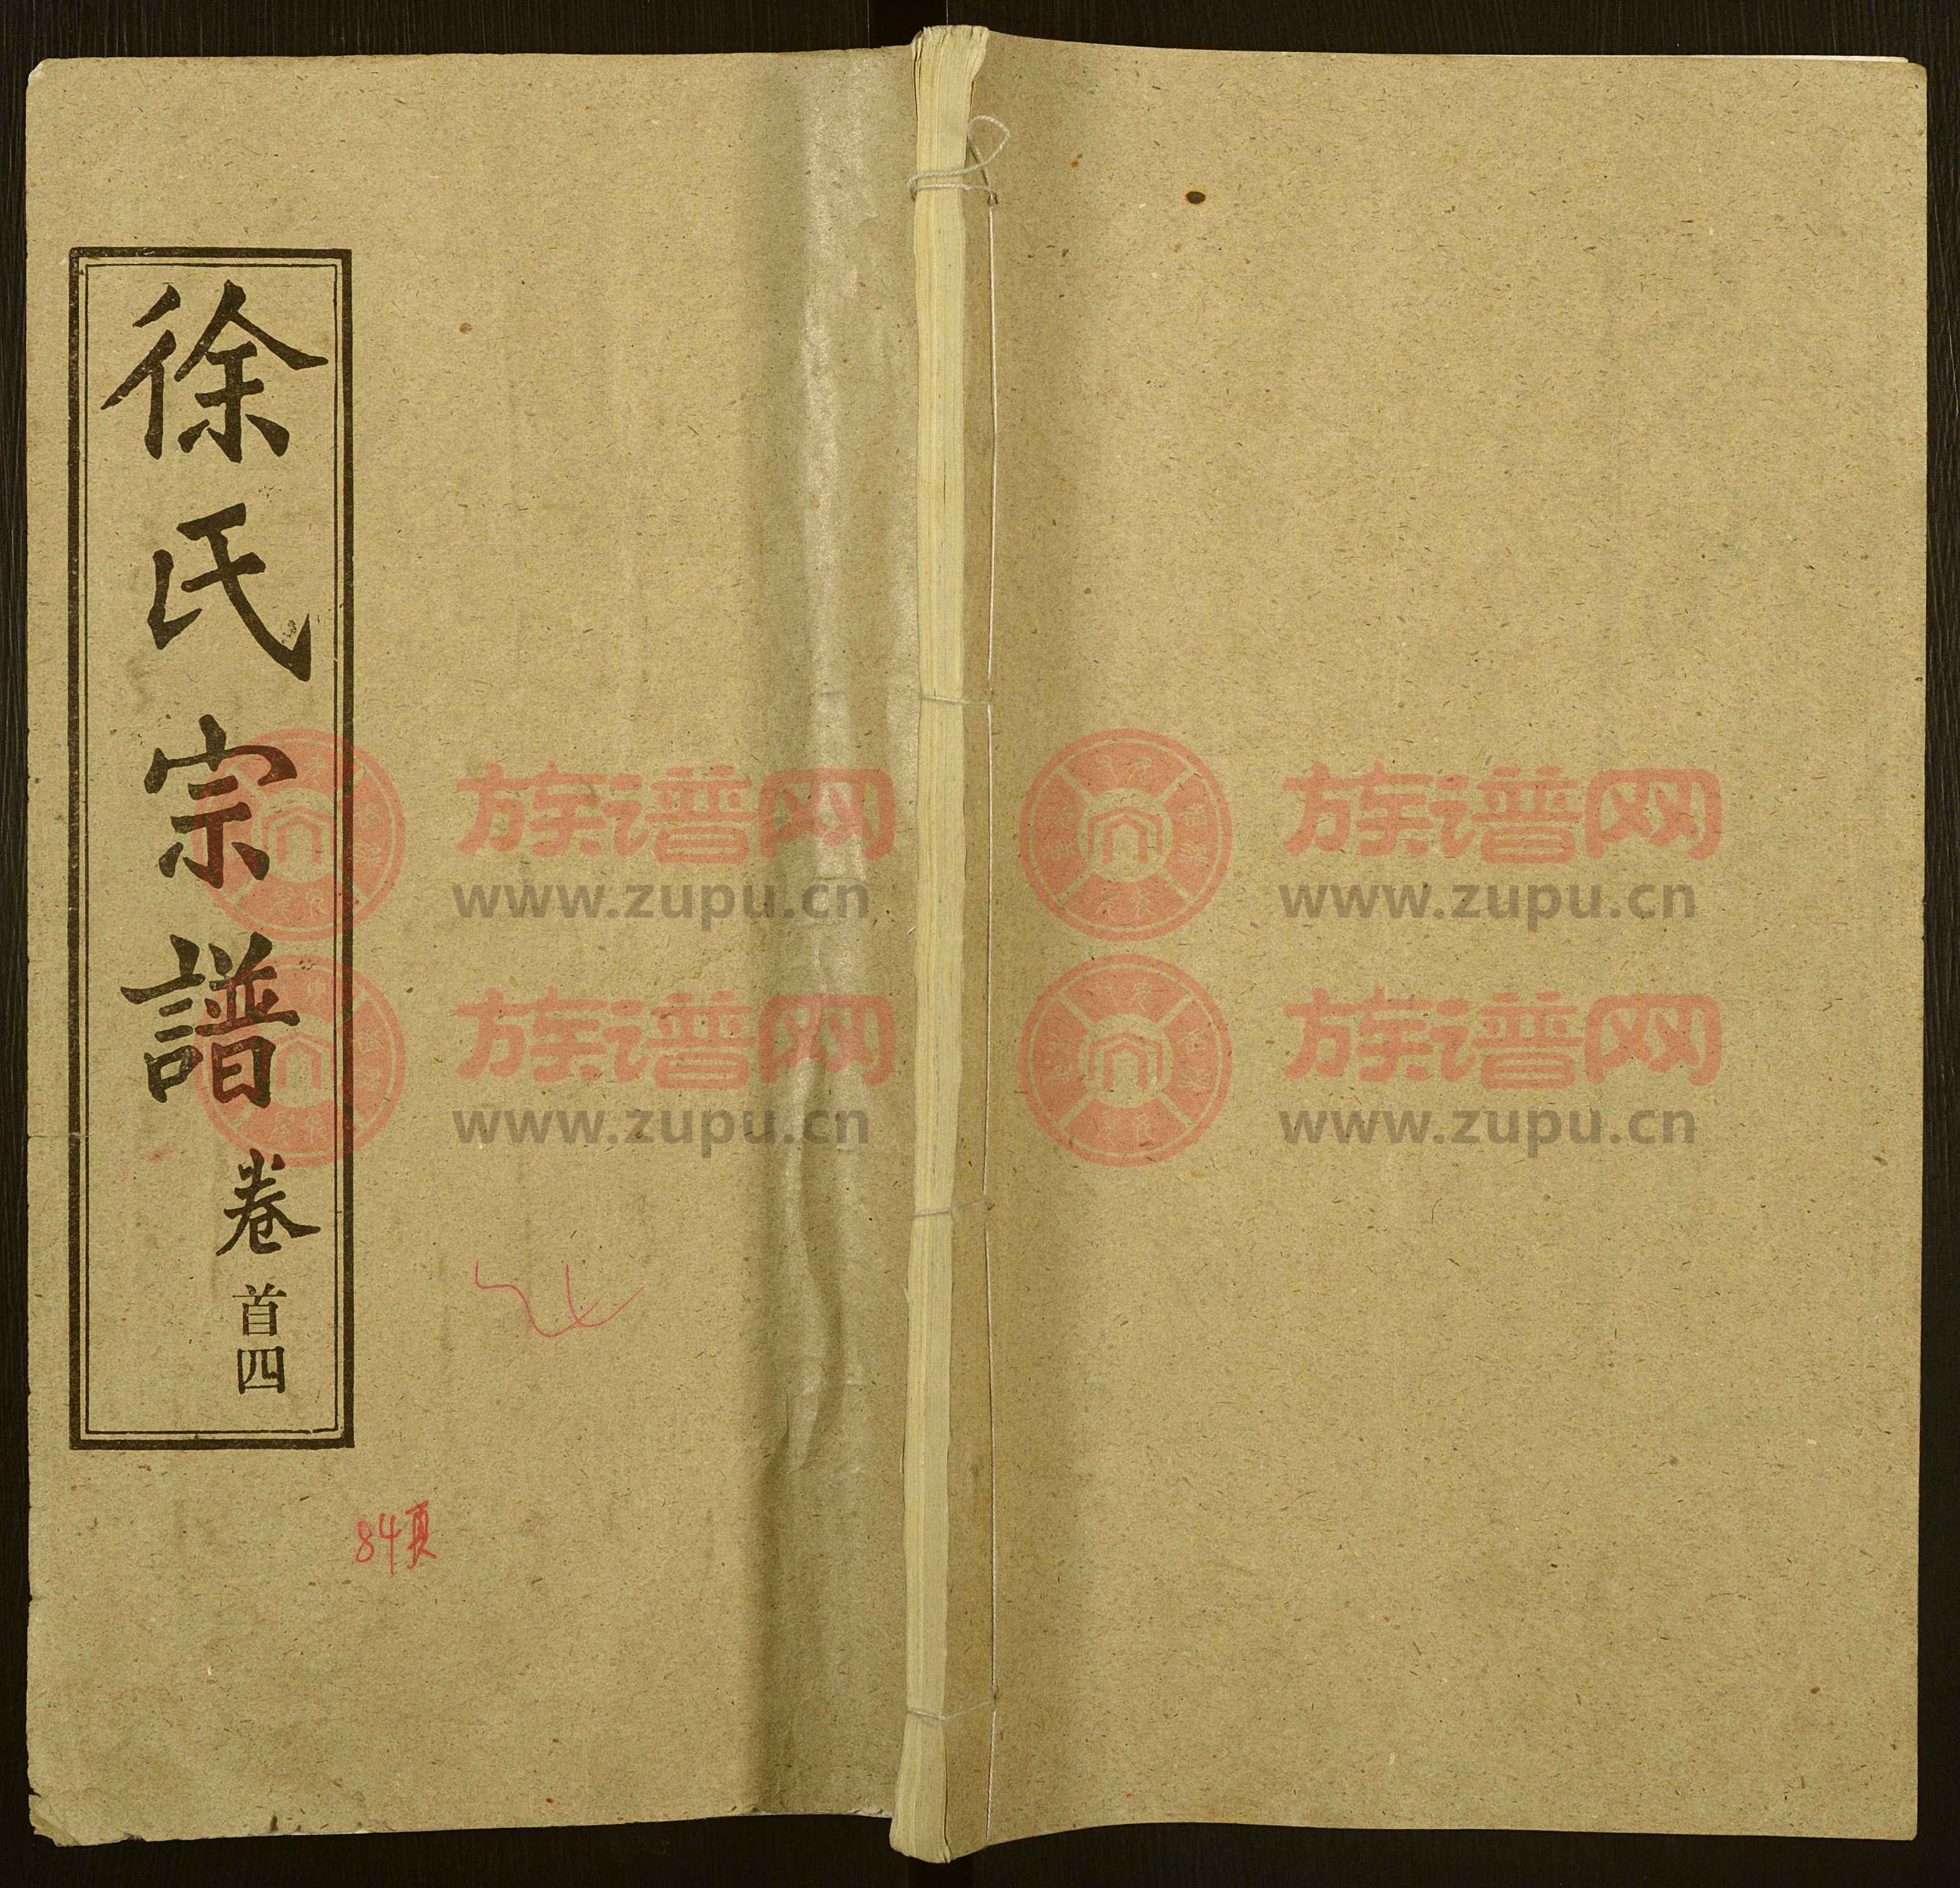 徐氏宗譜
卷首四
84頁
族谱网
www.zupu.cn
族谱网
www.zupu.cn
族谱网
www.zupu.cn
族谱网
www.zupu.cn